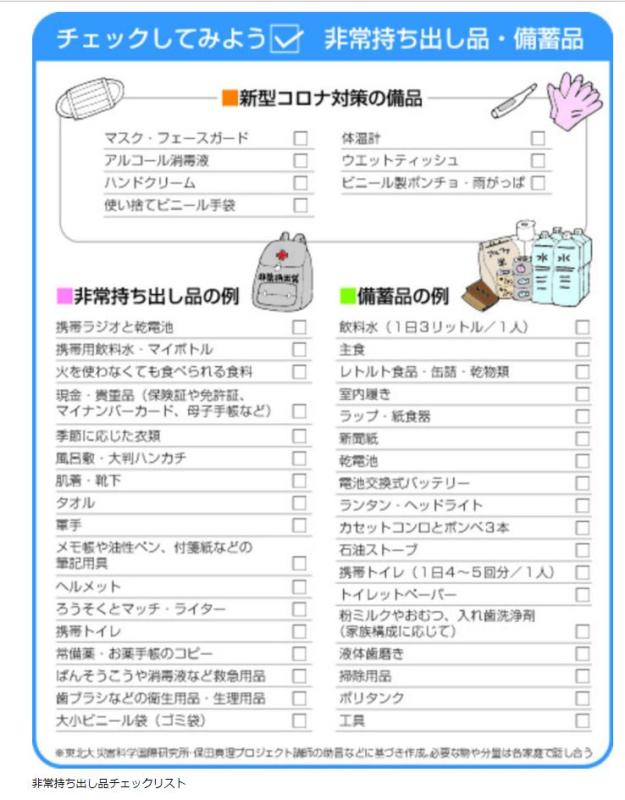 チェックしてみよう 非常持ち出し品・備蓄品
■新型コロナ対策の備品
マスク・フェースガード
アルコール消毒液
ハンドクリーム
使い捨てビニール手袋
体温計
ウエットティッシュ
ビニール製ポンチョ・雨がっぱ
■非常持ち出し品の例
携帯ラジオと乾電池
携帯用飲料水・マイボトル
火を使わなくても食べられる食料
現金・貴重品（保険証や免許証、
マイナンバーカード、母子手帳など）
季節に応じた衣類
風呂敷・大判ハンカチ
肌着・靴下
タオル
軍手
メモ帳や油性ペン、付箋紙などの
筆記用具
ヘルメット
ろうそくとマッチ・ライター
携帯トイレ
常備薬・お薬手帳のコピー
ばんそうこうや消毒液など救急用品
歯ブラシなどの衛生用品・生理用品
大小ビニール袋（ゴミ袋）
水 水
■備蓄品の例
飲料水（1日3リットル／1人）
主食
レトルト食品・缶詰・乾物類
室内履き
ラップ・紙食器
新聞紙
乾電池
電池交換式バッテリー
ランタン・ヘッドライト
カセットコンロとボンベ3本
石油ストーブ
携帯トイレ（1日4～5回分／1人）
トイレットペーパー
粉ミルクやおむつ、入れ歯洗浄剤
（家族構成に応じて）
液体歯磨き
掃除用品
ポリタンク
工具
※東北大災害科学国際研究所・保田真理プロジェクト講師の助言などに基づき作成。必要な物や分量は各家庭で話し合う
非常持ち出し品チェックリスト